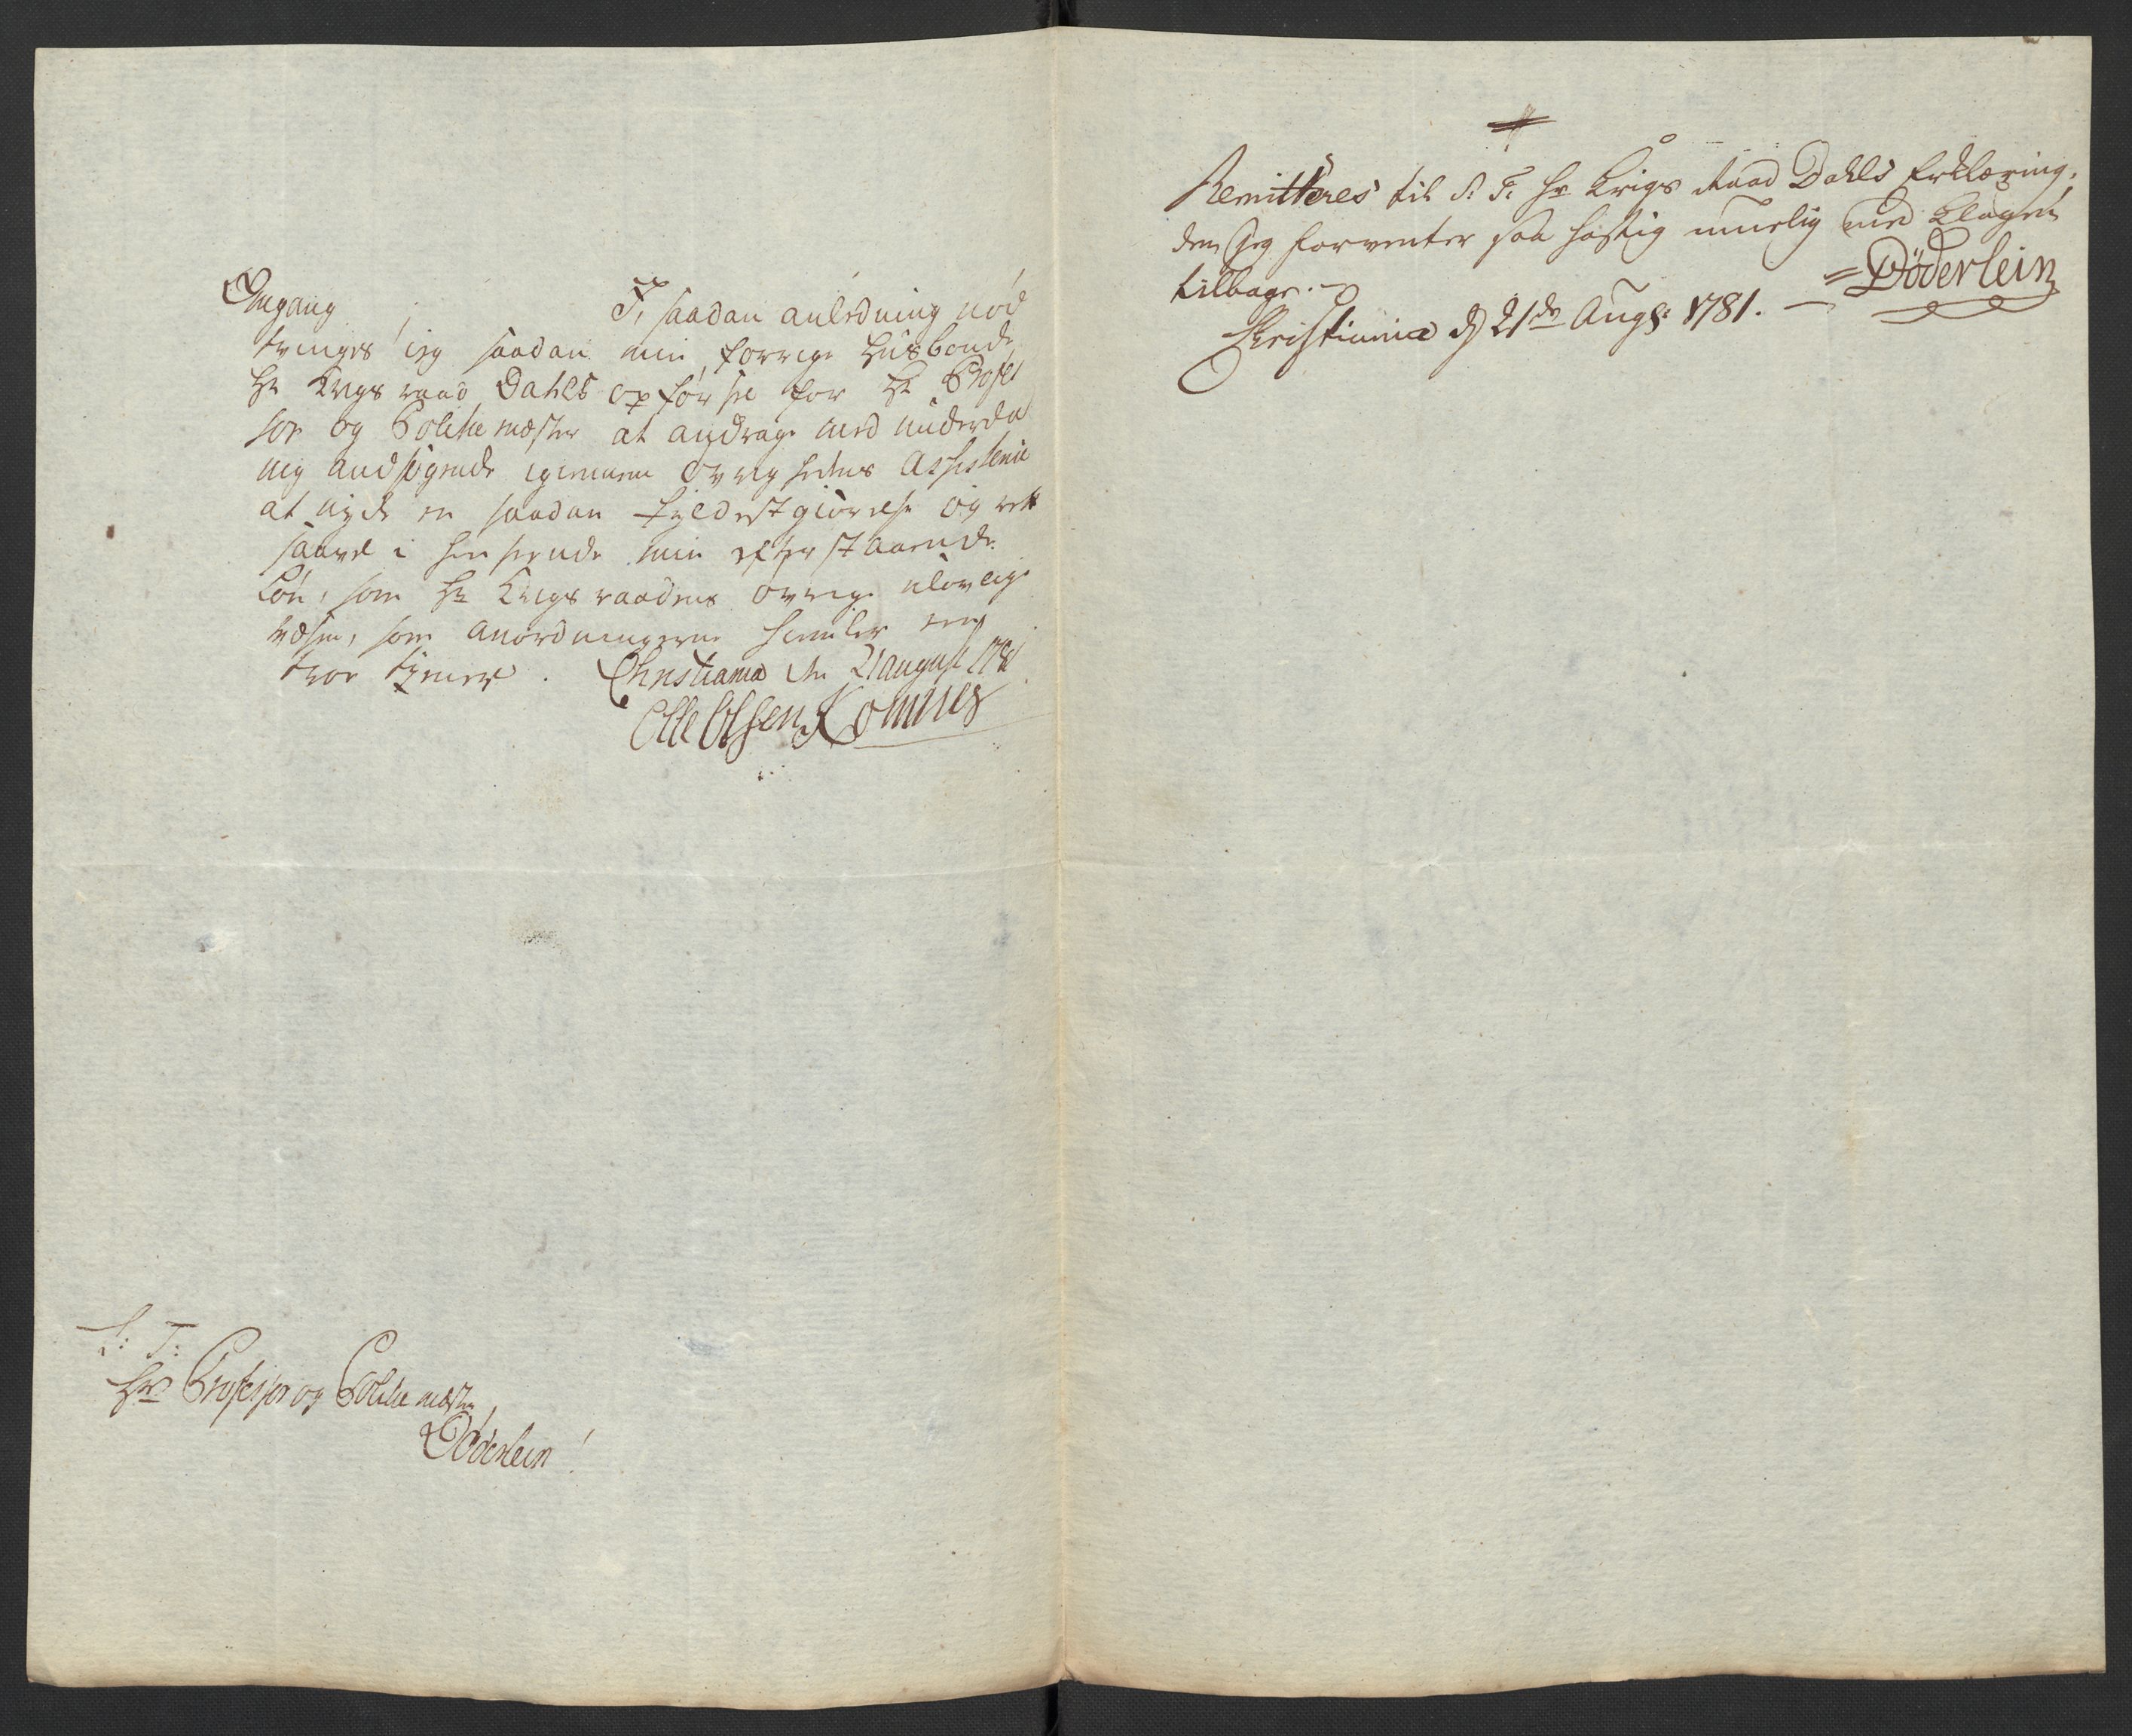 Omgang
I, saadan anledning nød
tvinges ieg saadan min forrige Huusbonde
Hr Krigsraad Dahls opførsel for Hr Profes
sor og Politiemæster at andrage med underda
nig andsøgende igiennem Øvrighedens Assistence
at nyde en saadan fyldestgiørelse og rett
saavel i henseende min efterstaaende
Løn, som Hr Krigsraadens øvrige ulovlige
væsen, som anordningerne hiemler en
troe tiener. Christiania den 21 august 1781
Olle Olsen Komnes
S: T:
Hr Professor og Politiemæster
Døderlein!
Remitteres til S. T. Hr Krigs Raad Dahls Erklæring,
den Jeg forventer saa hastig muelig med Klagen
tilbage.
Christiania d 21de Augs: 1781. =Döderlein